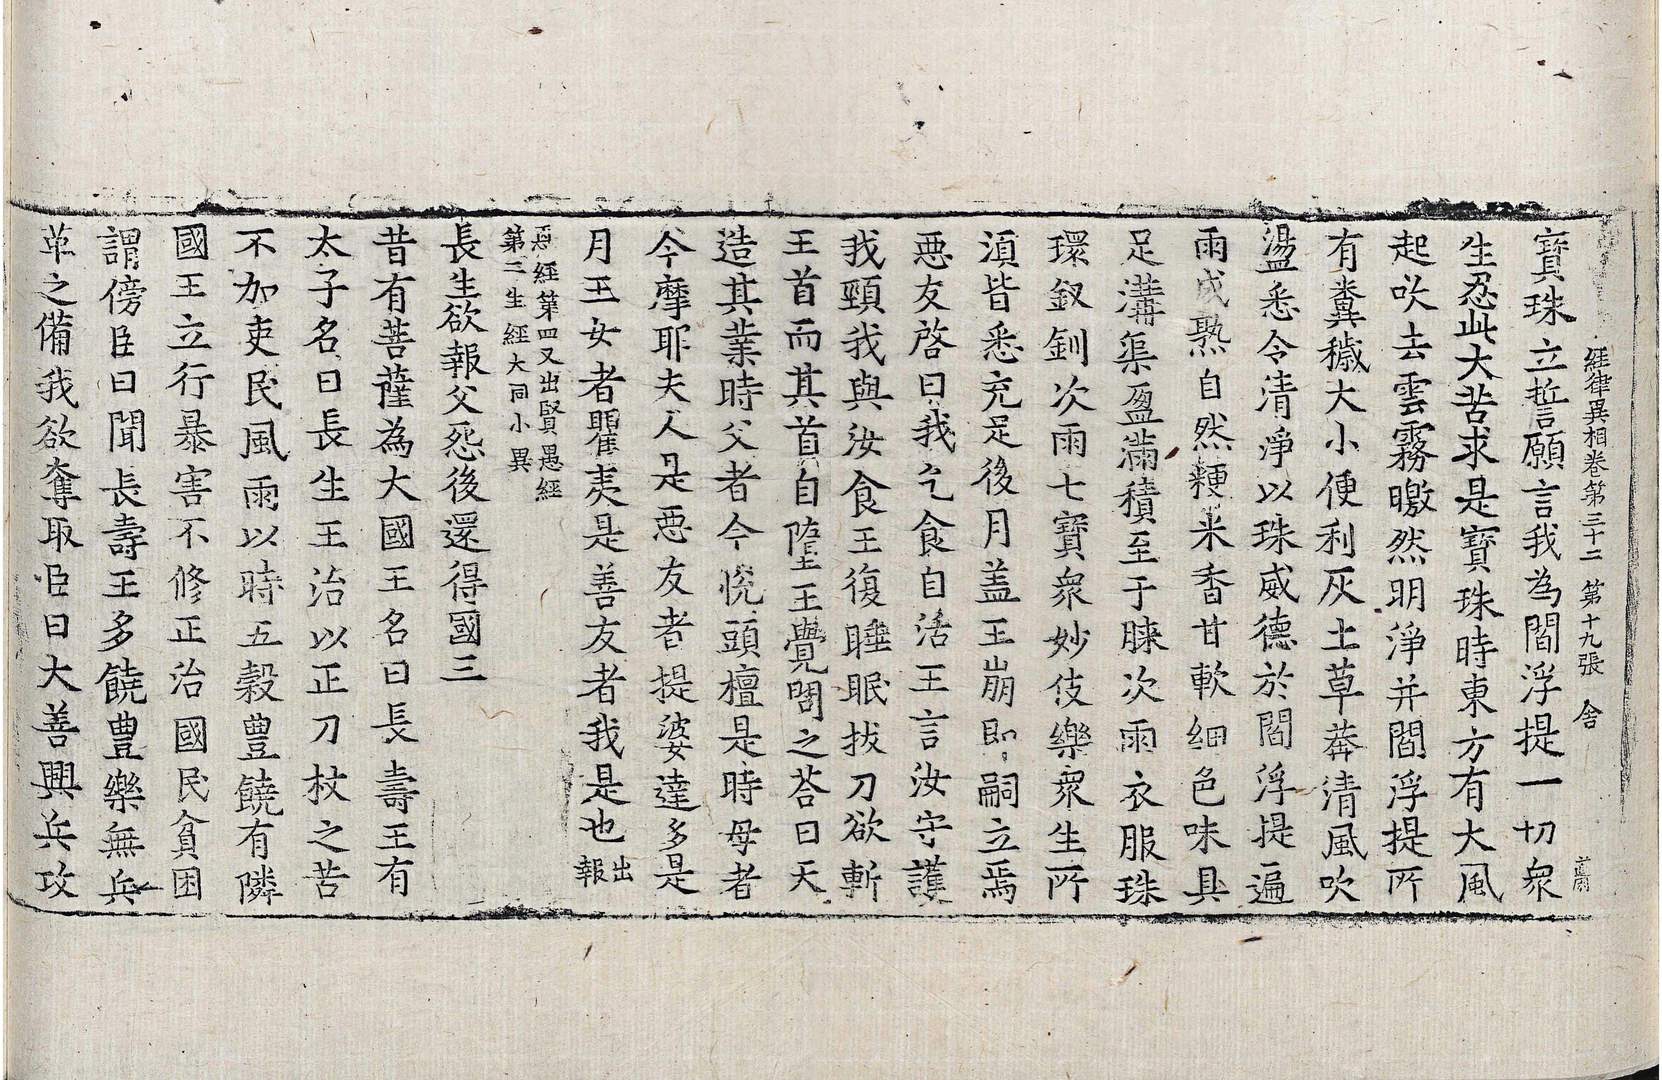 經律異相卷第三十二 第十九張 舍
寳珠立誓願言我為閻浮提一切衆
生忍此大苦求是寳珠時東方有大風
起吹去雲霧曒然明淨并閻浮提所
有糞穢大小便利灰土草莽清風吹
盪悉令清淨以珠威德於閻浮提遍
雨成熟自然粳米香甘軟細色味具
足溝渠盈滿積至于膝次雨衣服珠
環釵釧次雨七寳衆妙伎樂衆生所
須皆悉充足後月盖王崩即嗣立焉
惡友啓曰我乞食自活王言汝守護
我頸我與汝食王復睡眠拔刀欲斬
王首而其首自墮王覺問之荅曰天
造其業時父者今悅頭檀是時母者
今摩耶夫人是惡友者提婆達多是
月王女者瞿夷是善友者我是也出報
恩經第四又出賢愚經
第二生經大同小異
長生欲報父怨後還得國三
昔有菩薩為大國王名曰長壽王有
太子名曰長生王治以正刀杖之苦
不加吏民風雨以時五穀豊饒有隣
國王立行暴害不修正治國民貪困
謂傍臣曰聞長壽王多饒豊樂無兵
革之備我欲奪取臣曰大善興兵攻